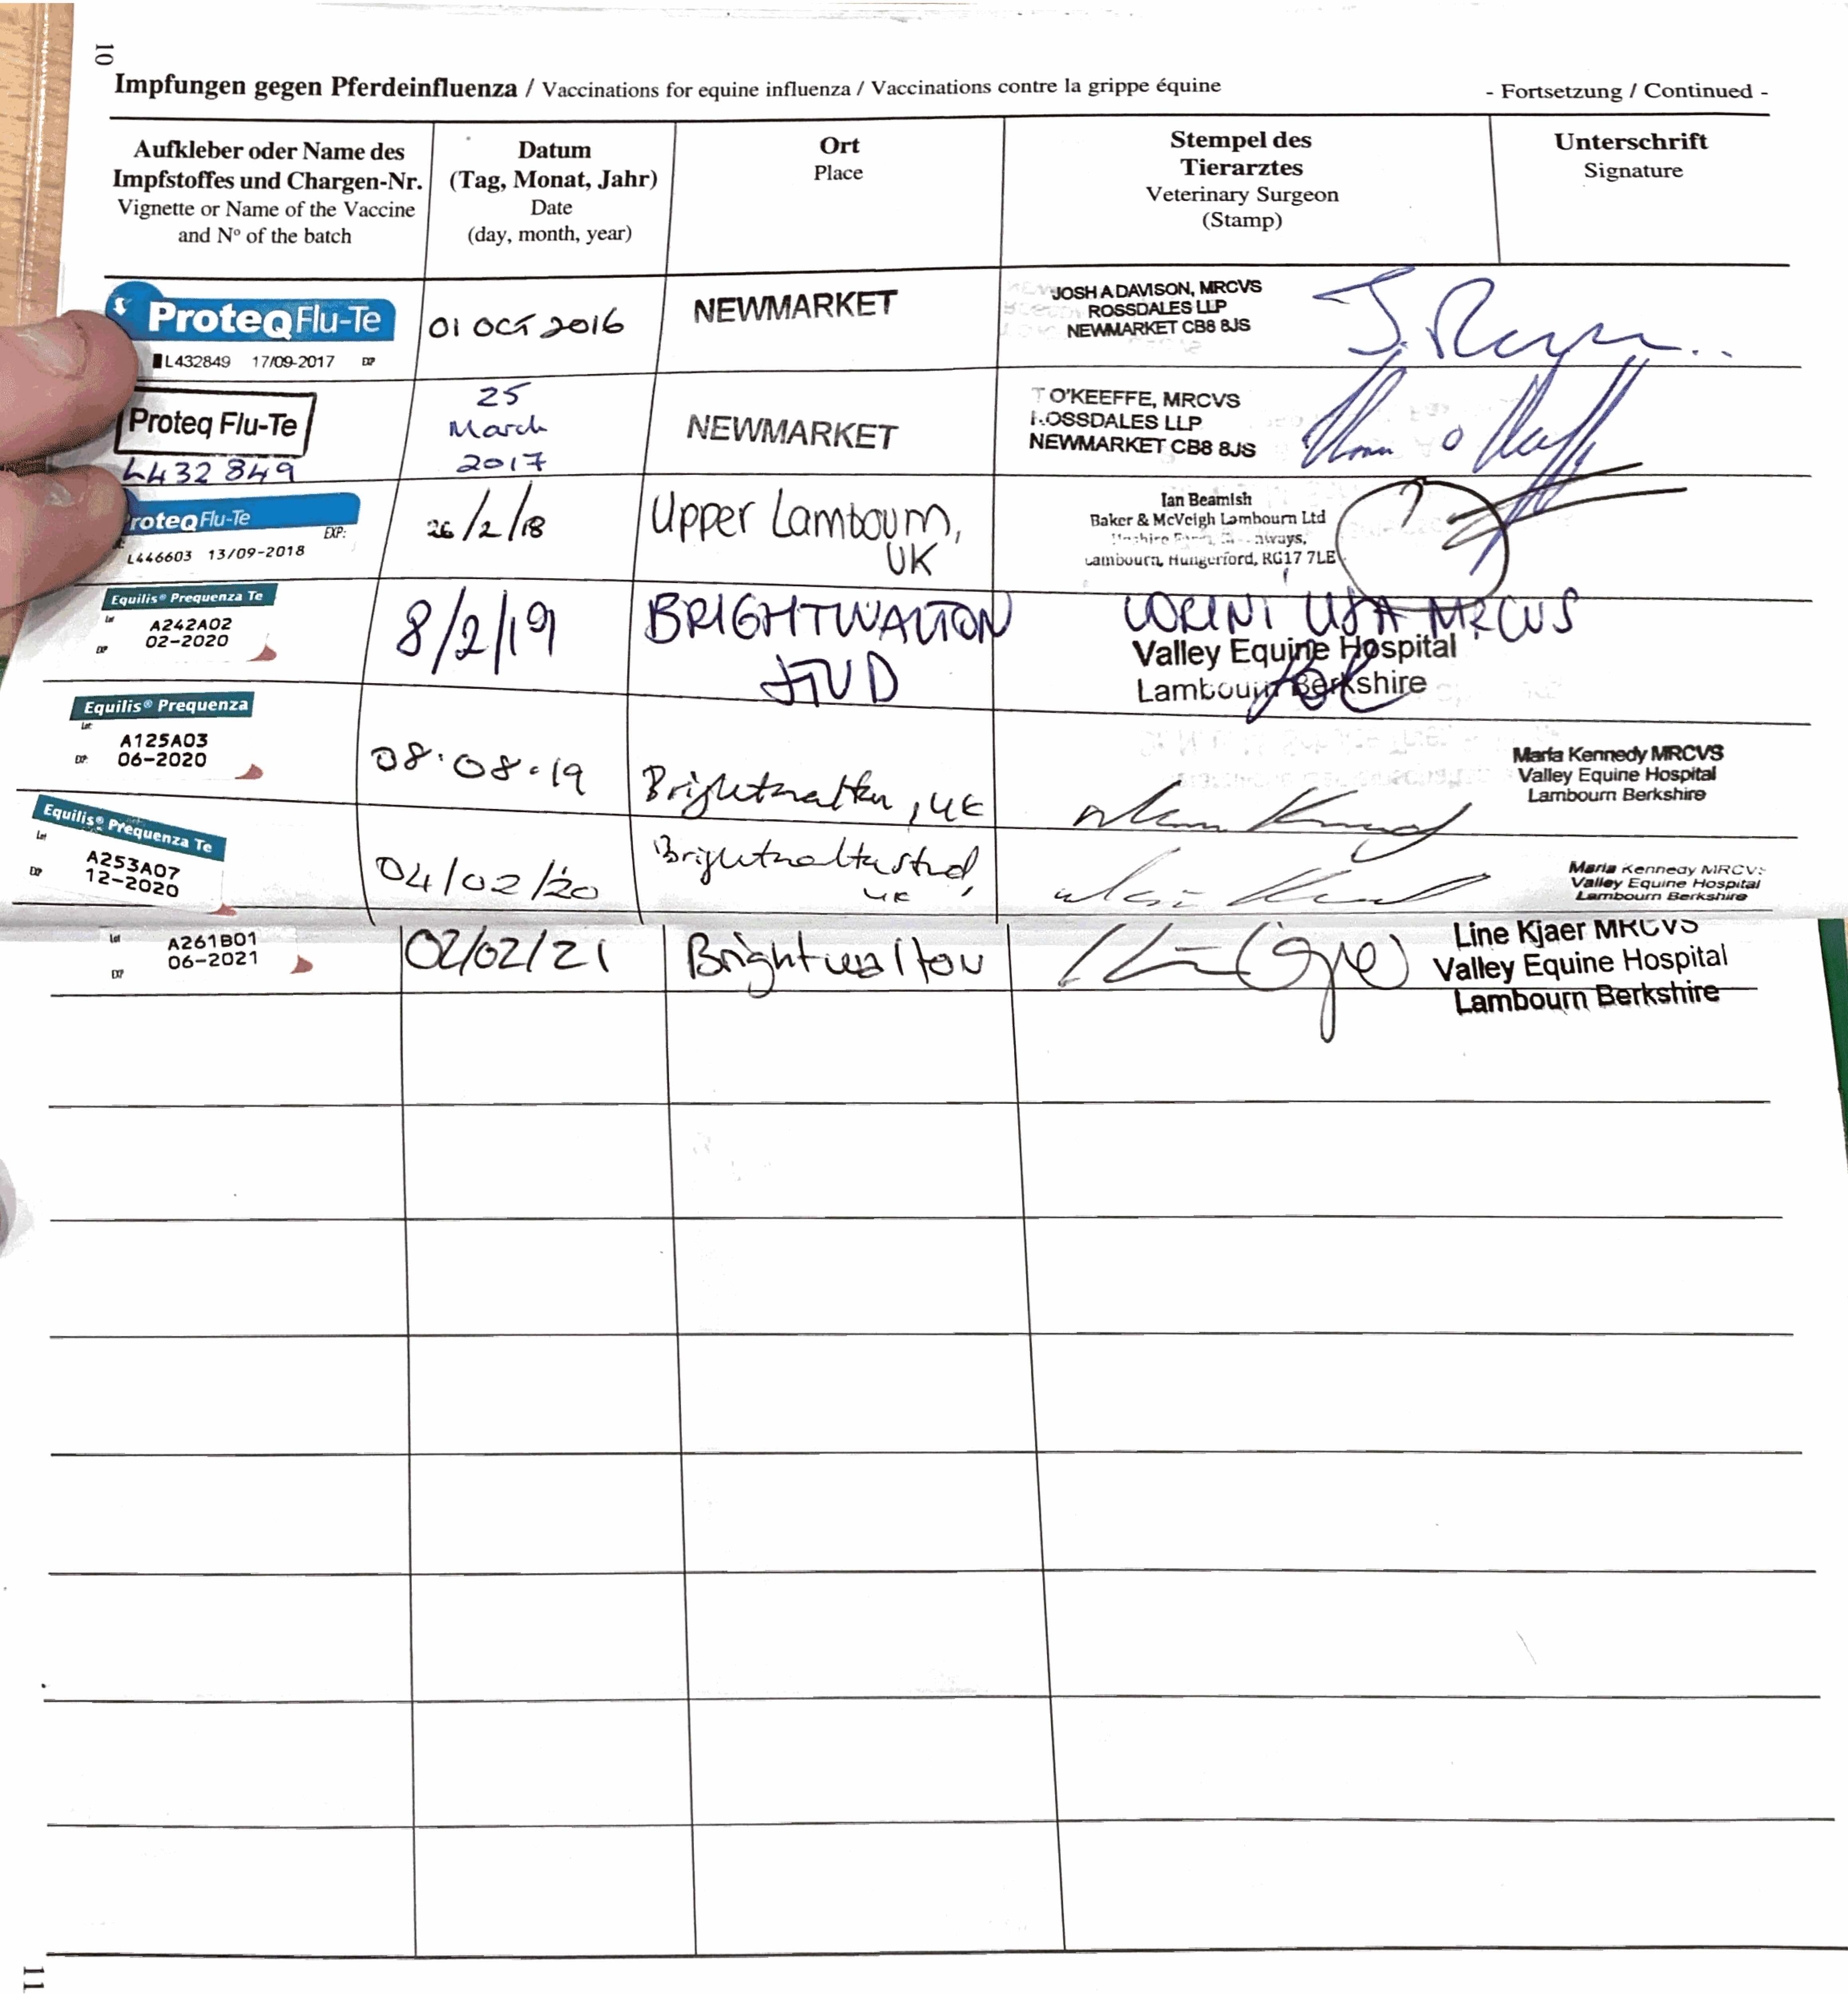 10
Impfungen gegen Pferdeinfluenza / Vaccinations for equine influenza / Vaccinations contre la grippe équine - Fortsetzung / Continued -
Aufkleber oder Name des
Impfstoffes und Chargen-Nr.
Vignette or Name of the Vaccine
and N° of the batch
Datum
(Tag, Monat, Jahr)
Date
(day, month, year)
Ort
Place
Stempel des
Tierarztes
Veterinary Surgeon
(Stamp)
Unterschrift
Signature
ProteqFlu-Te
L432849 17/09-2017 EXP
01 OCT 2016
NEWMARKET
JOSH A DAVISON, MRCVS
ROSSDALES LLP
NEWMARKET CB8 8JS
Proteq Flu-Te
L432849
25
March
2017
NEWMARKET
T O'KEEFFE, MRCVS
ROSSDALES LLP
NEWMARKET CB8 8JS
roteqFlu-Te
EXP:
L446603 13/09-2018
26/2/18
Upper Lambourn,
UK
Ian Beamish
Baker & McVeigh Lambourn Ltd
Lambourn, Hungerford, RG17 7LE
Equilis® Prequenza Te
Lot A242A02
EXP 02-2020
8/2/19
BRIGHTWALTON
STUD
MRCVS
Valley Equine Hospital
Lambourn Berkshire
Equilis® Prequenza
Lot A125A03
EXP 06-2020
08.08.19
Brightwalton, UK
Maria Kennedy MRCVS
Valley Equine Hospital
Lambourn Berkshire
Equilis® Prequenza Te
Lot A253A07
EXP 12-2020
04/02/20
Brightwalton Stud,
UK
Maria Kennedy MRCVS
Valley Equine Hospital
Lambourn Berkshire
Lot A261B01
EXP 06-2021
02/02/21
Brightwalton
Line Kjaer MRCVS
Valley Equine Hospital
Lambourn Berkshire
11